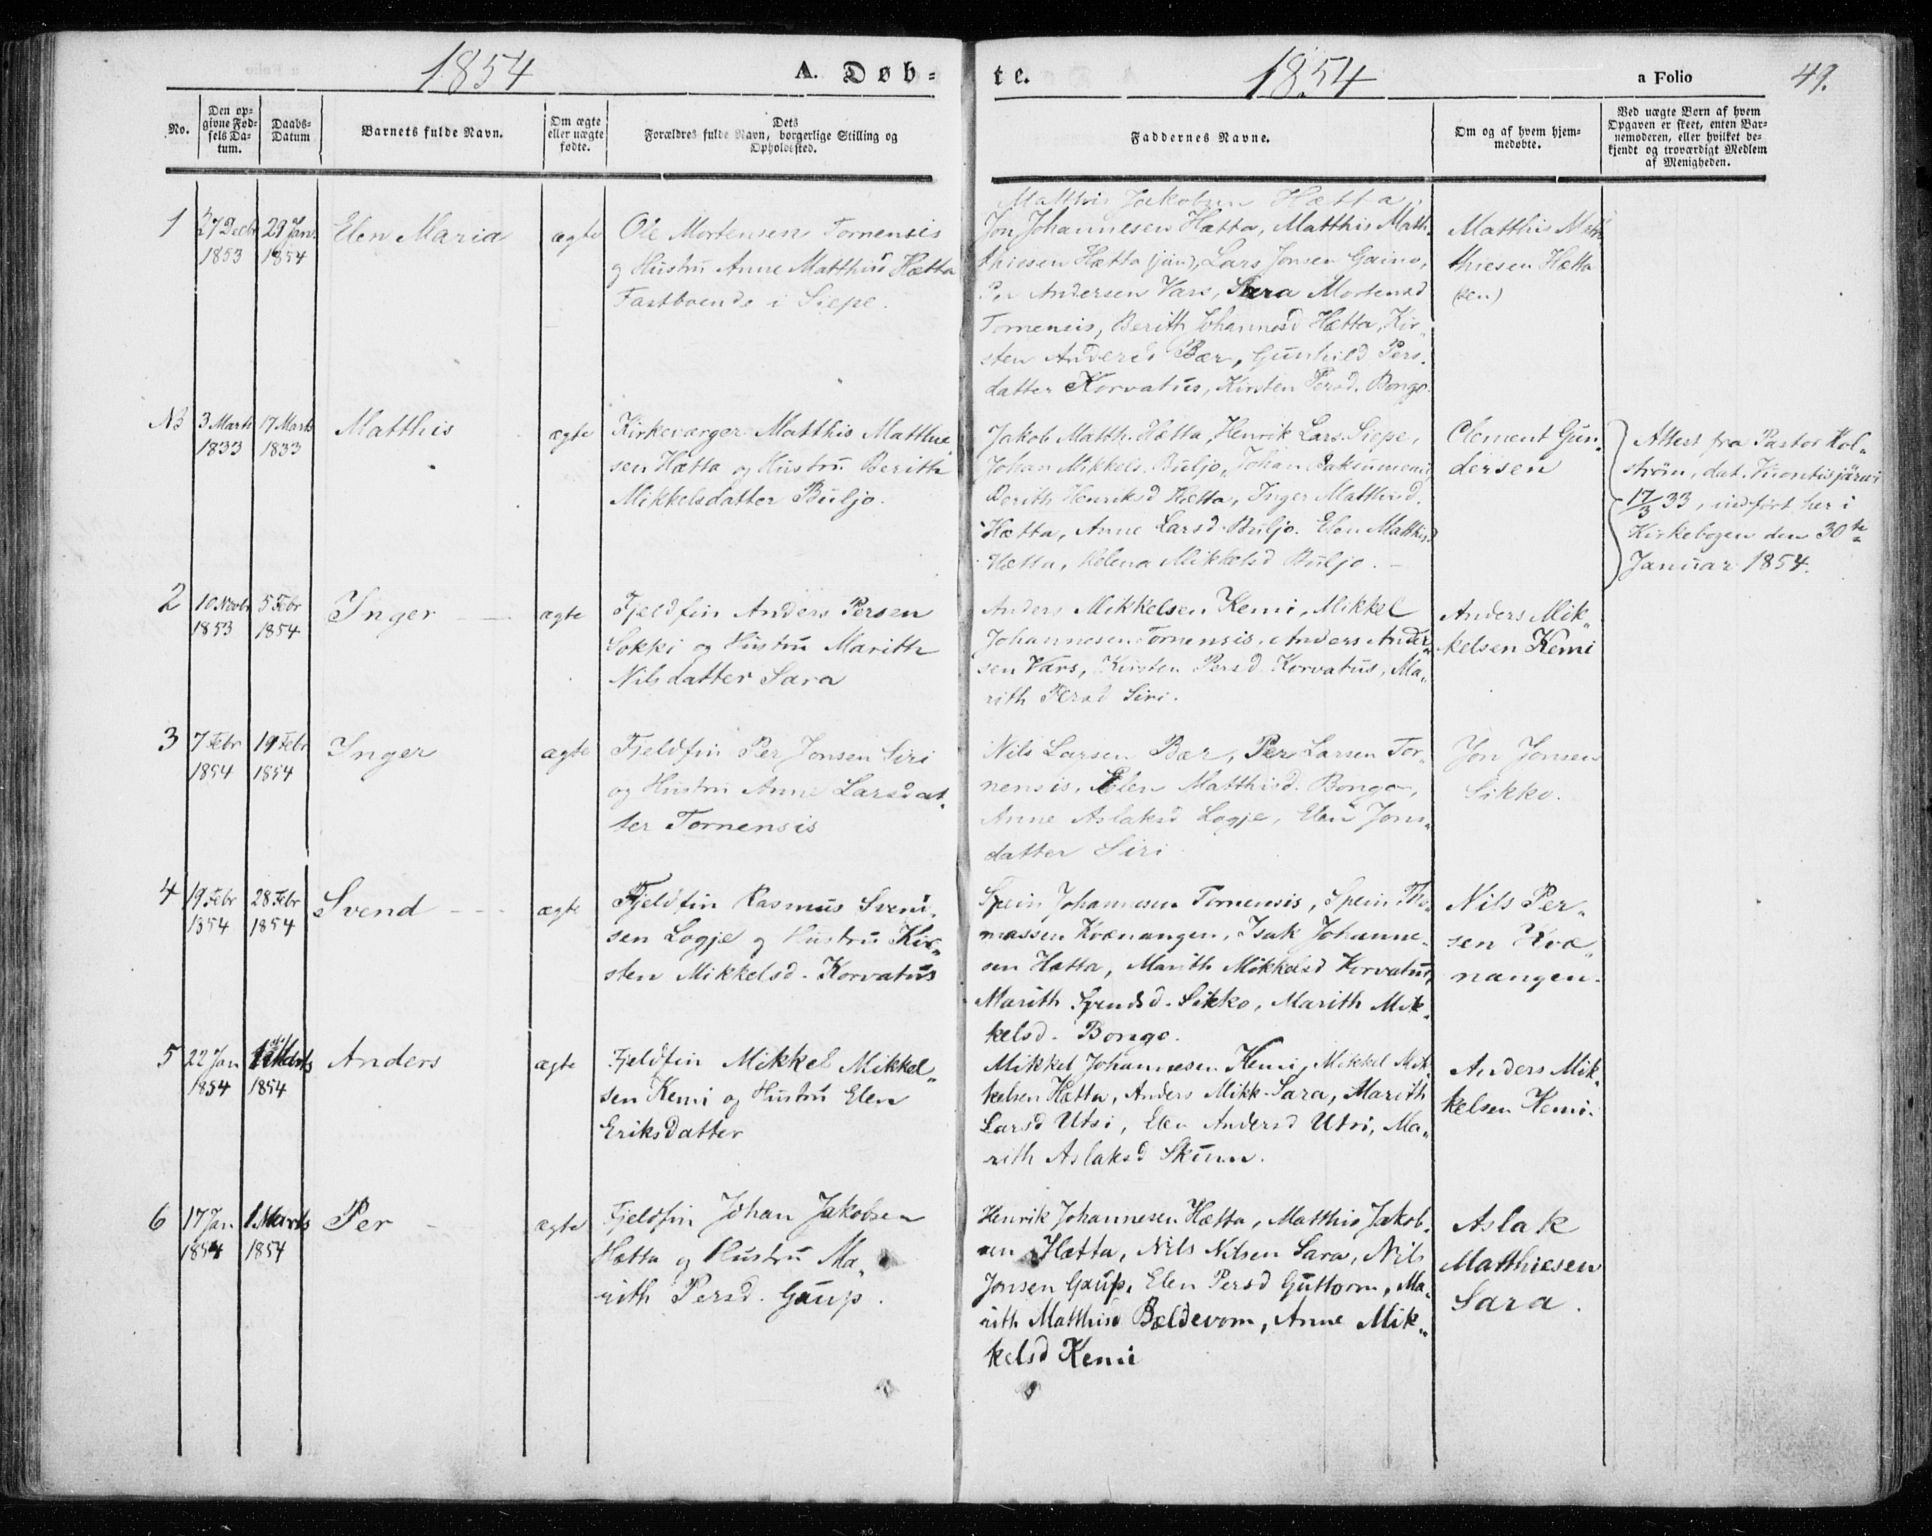 1854 A. Døb-
te. 1854 a Folio 49.
No.
Den op-
givne Fød-
sels Da-
tum.
Daabs-
Datum
Barnets fulde Navn.
Om ægte
eller uægte
fødte.
Dets
Forældres fulde Navn, borgerlige Stilling og
Opholdssted.
Faddernes Navne.
Om og af hvem hjem-
medøbte.
Ved uægte Børn af hvem
Opgaven er skeet, enten Bar-
nemoderen, eller hvilket be-
kjendt og troværdigt Medlem
af Menigheden.
1
27 Decbr
1853
29 Jan.
1854
Elen Maria
ægte
Ole Mortensen Tornensis
og Hustru Anne Matthisd Hætta
Fastboende i Siepe.
Matthis Jakobsen Hætta,
Jon Johannesen Hætta, Matthis Mat-
thiesen Hætta (jun), Lars Jonsen Gaino,
Per Andersen Vars, Sara Mortensd
Tornensis, Berith Johannesd Hætta, Kir-
sten Andersd Bær, Gunhild Pers-
datter Korvatus, Kirsten Persd. Bongo.
Matthis Mat-
thiesen Hætta
(sen)
NB
3 Marts
1833
17 Marts
1833
Matthis
ægte
Kirkeværger Matthis Matthie-
sen Hætta og Hustru Berith
Mikkelsdatter Buljo.
Jakob Matth. Hætta, Henrik Lars. Siepe,
Johan Mikkels. Buljo, Johan
Berith Henriksd Hætta, Inger Matthisd.
Hætta, Anne Larsd Buljo. Elen Matthisd
Hætta, Helena Mikkelsd Buljo. -
Clement Gun-
dersen
Attest fra Pastor Kol-
strøm, dat. Kuontisjärwi
17/3 33, indført her i
Kirkebogen den 30te
Januar 1854.
2
10 Novbr
1853
5 Febr
1854
Inger
ægte
Fjeldfin Anders Persen
Sokki og Hustru Marith
Nilsdatter Sara
Anders Mikkelsen Kemi, Mikkel
Johannesen Tornensis, Anders Ander-
sen Vars, Kirsten Persd Korvatus, Ma-
rith Persd Siri.
Anders Mik-
kelsen Kemi
3
7 Febr
1854
19 Febr
1854
Inger
ægte
Fjeldfin Per Jonsen Siri
og Hustru Anne Larsdat-
ter Tornensis
Nils Larsen Bær, Per Larsen Tor-
nensis, Elen Matthisd. Bongo,
Anne Aslaksd Logje, Elen Jons-
datter Siri
Jon Jonsen
Sikko.
4
19 Febr
1854
28 Febr
1854
Svend
ægte
Fjeldfin Rasmus Svend-
sen Logje og Hustru Kir-
sten Mikkelsd. Korvatus
Spein Johannesen Tornensis, Spein Tho-
massen Kvænangen, Isak Johanne-
sen Hætta, Marith Mikkelsd Korvatus,
Marith Svendsd. Sikko, Marith Mik-
kelsd. Bongo.
Nils Per-
sen Kvæ-
nangen.
5
22 Jan
1854
Marts
1854
Anders
ægte
Fjeldfin Mikkel Mikkel-
sen Kemi og Hustru Elen
Eriksdatter
Mikkel Johannesen Kemi, Mikkel Mik-
kelsen Hætta, Anders Mikk. Sara, Marith
Larsd Utsi, Elen Andersd Utsi, Ma-
rith Aslaksd Skum.
Anders Mik-
kelsen Kemi.
6
17 Jan
1854
1 Marts
1854
Per
ægte
Fjeldfin Johan Jakobsen
Hætta og Hustru Ma-
rith Persd. Gaup.
Henrik Johannesen Hætta, Matthis Jakob-
sen Hætta, Nils Nilsen Sara, Nils
Jonsen Gaup, Elen Persd Guttorm, Ma-
rith Matthisd Bældevom, Anne Mik-
kelsd Kemi
Aslak
Matthiesen
Sara.